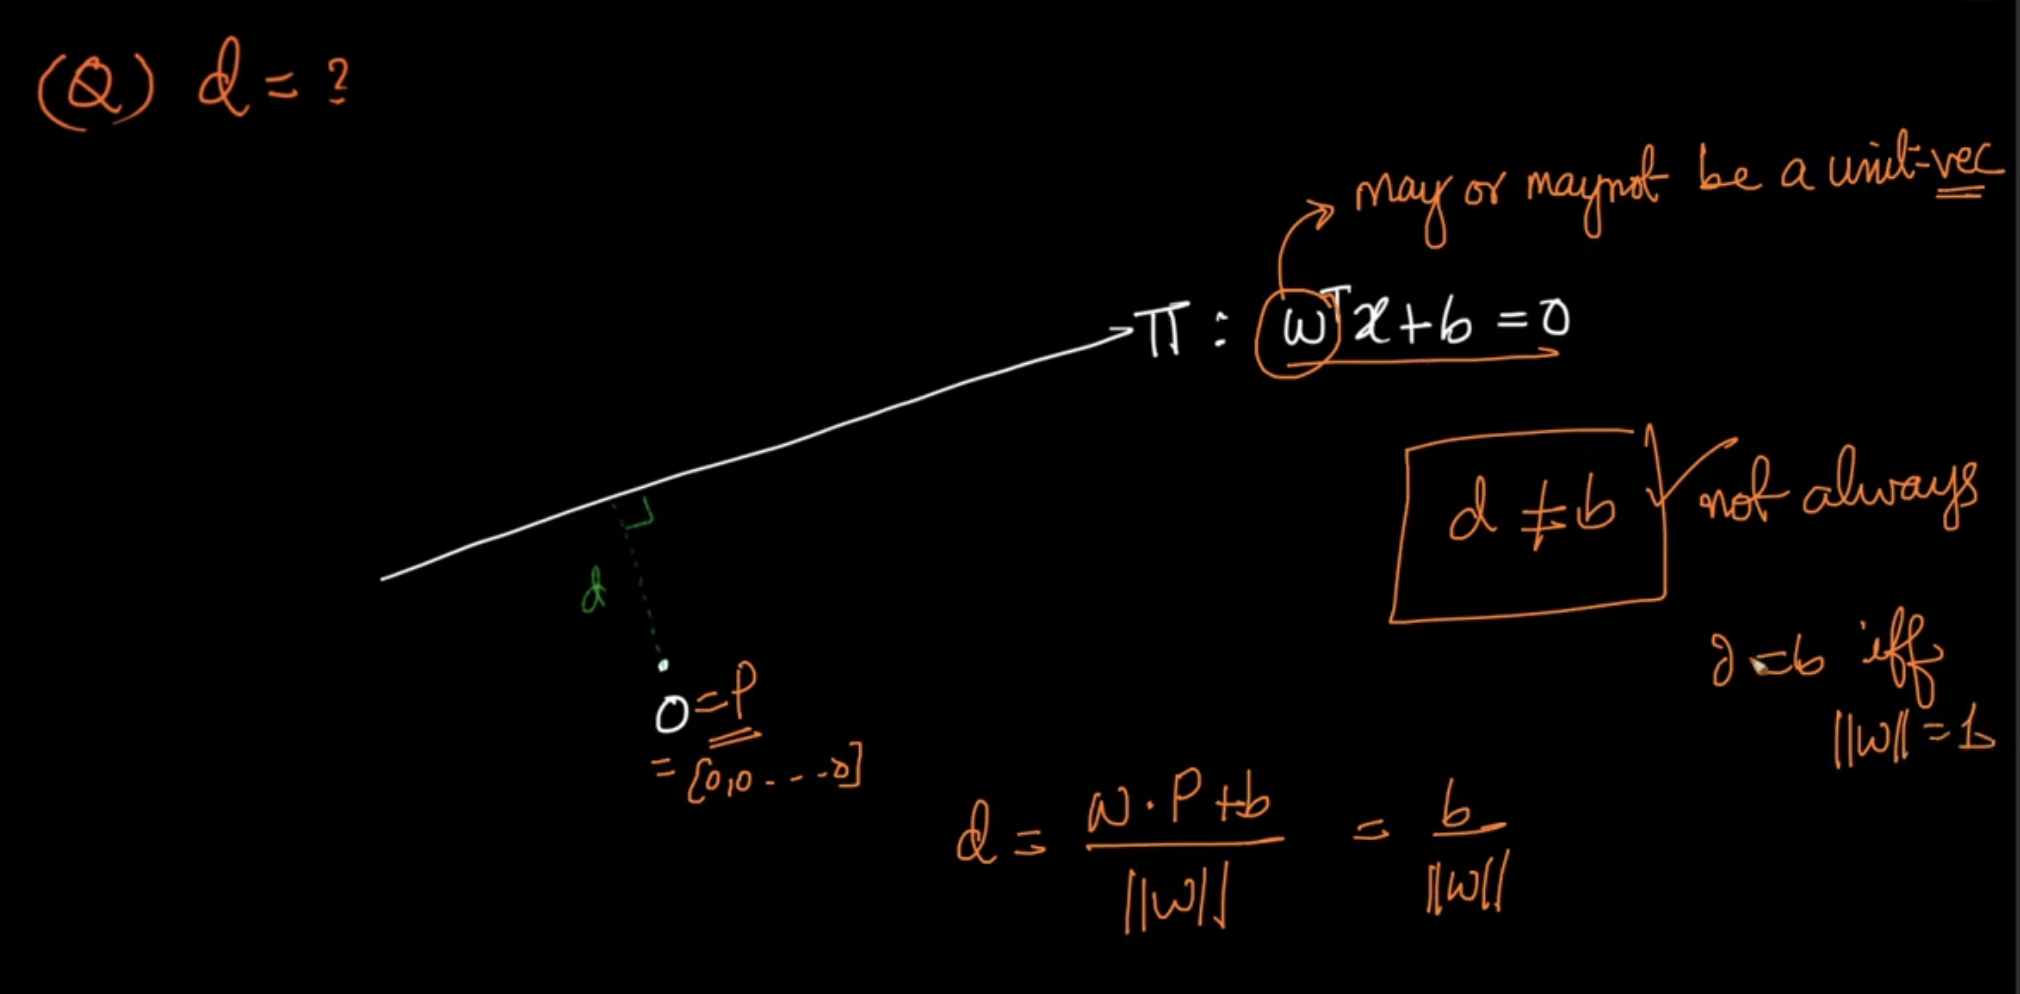 (Q) d = ?
may or maynot be a unit-vec
π : wᵀx+b = 0
d ≠ b not always
d
d = b iff
||w|| = 1
O = P
= [0,0 - - - 0]
d = w · P + b / ||w|| = b / ||w||